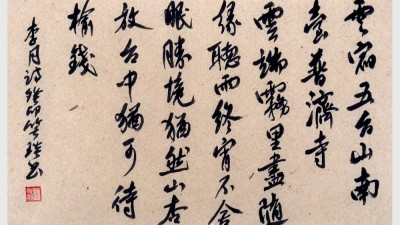 雲宿五台山南
台普濟寺
雲端霧里盡随
緣聽雨終宵不舍
眠勝境猶然山杏
放台中猶可待
榆錢
李月詩